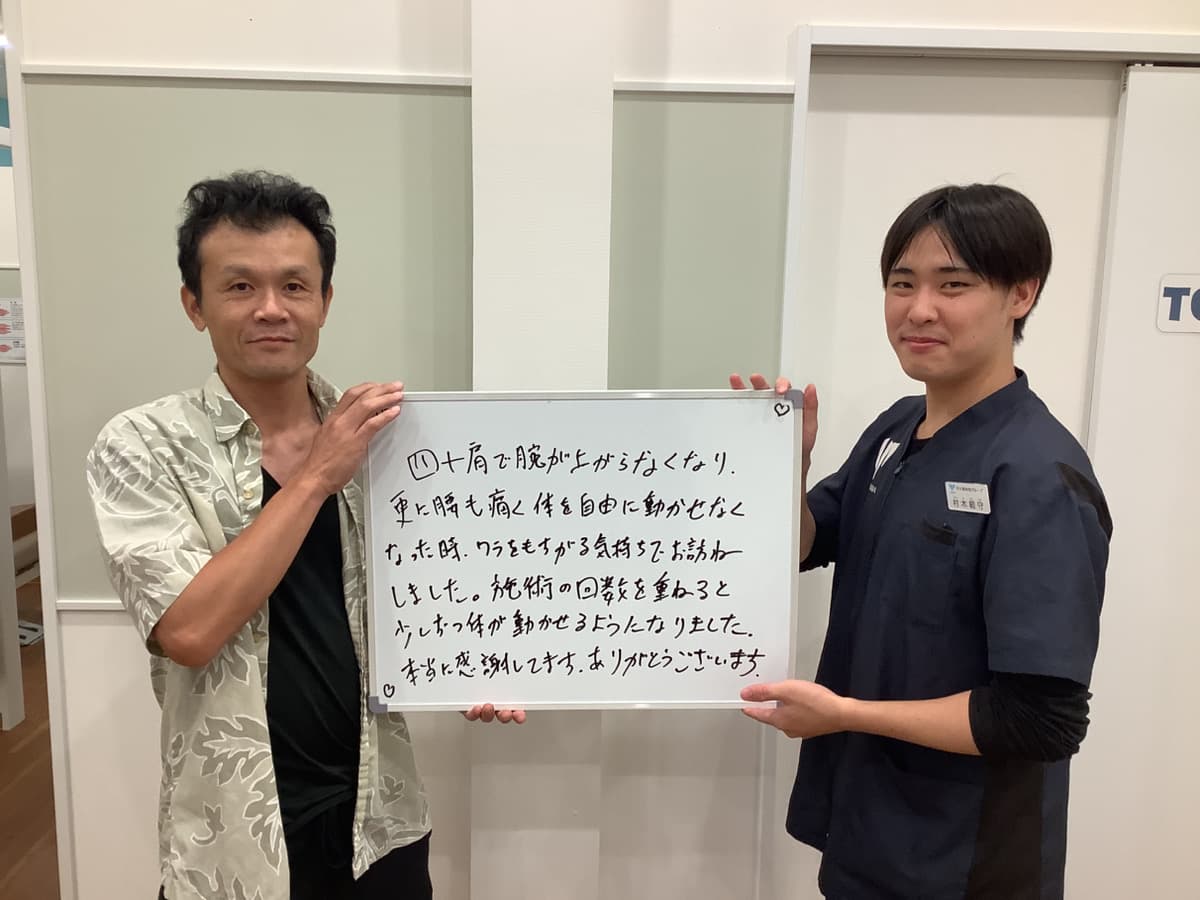 四十肩で腕が上がらなくなり.
更に腰も痛く体を自由に動かせなく
なった時.ワラをもすがる気持ちでお訪ね
しました。施術の回数を重ねると
少しずつ体が動かせるようになりました.
本当に感謝してます.ありがとうございます.
TO